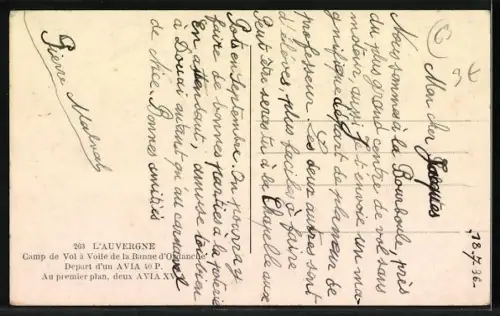 Mon cher Jacques
Nous sommes à la Bourboule, près
du plus grand centre de vol sans
moteur aussi je t'envoie un ma-
gnifique départ de planeur de
professeur. Les deux autres sont
d'élèves, plus faciles à faire
Peut être seras tu à la Chapelle aux
Pots en Septembre. On pourra y
faire de bonnes parties à la poterie
En attendant, amuse toi bien
à Douai autant qu'au carnaval
de Nice. Bonnes amitiés
Pierre
18.7.36.
6
9€
263 L'AUVERGNE
Camp de Vol à Voile de la Banne d'Ordanche
Départ d'un AVIA 40 P.
Au premier plan, deux AVIA XV